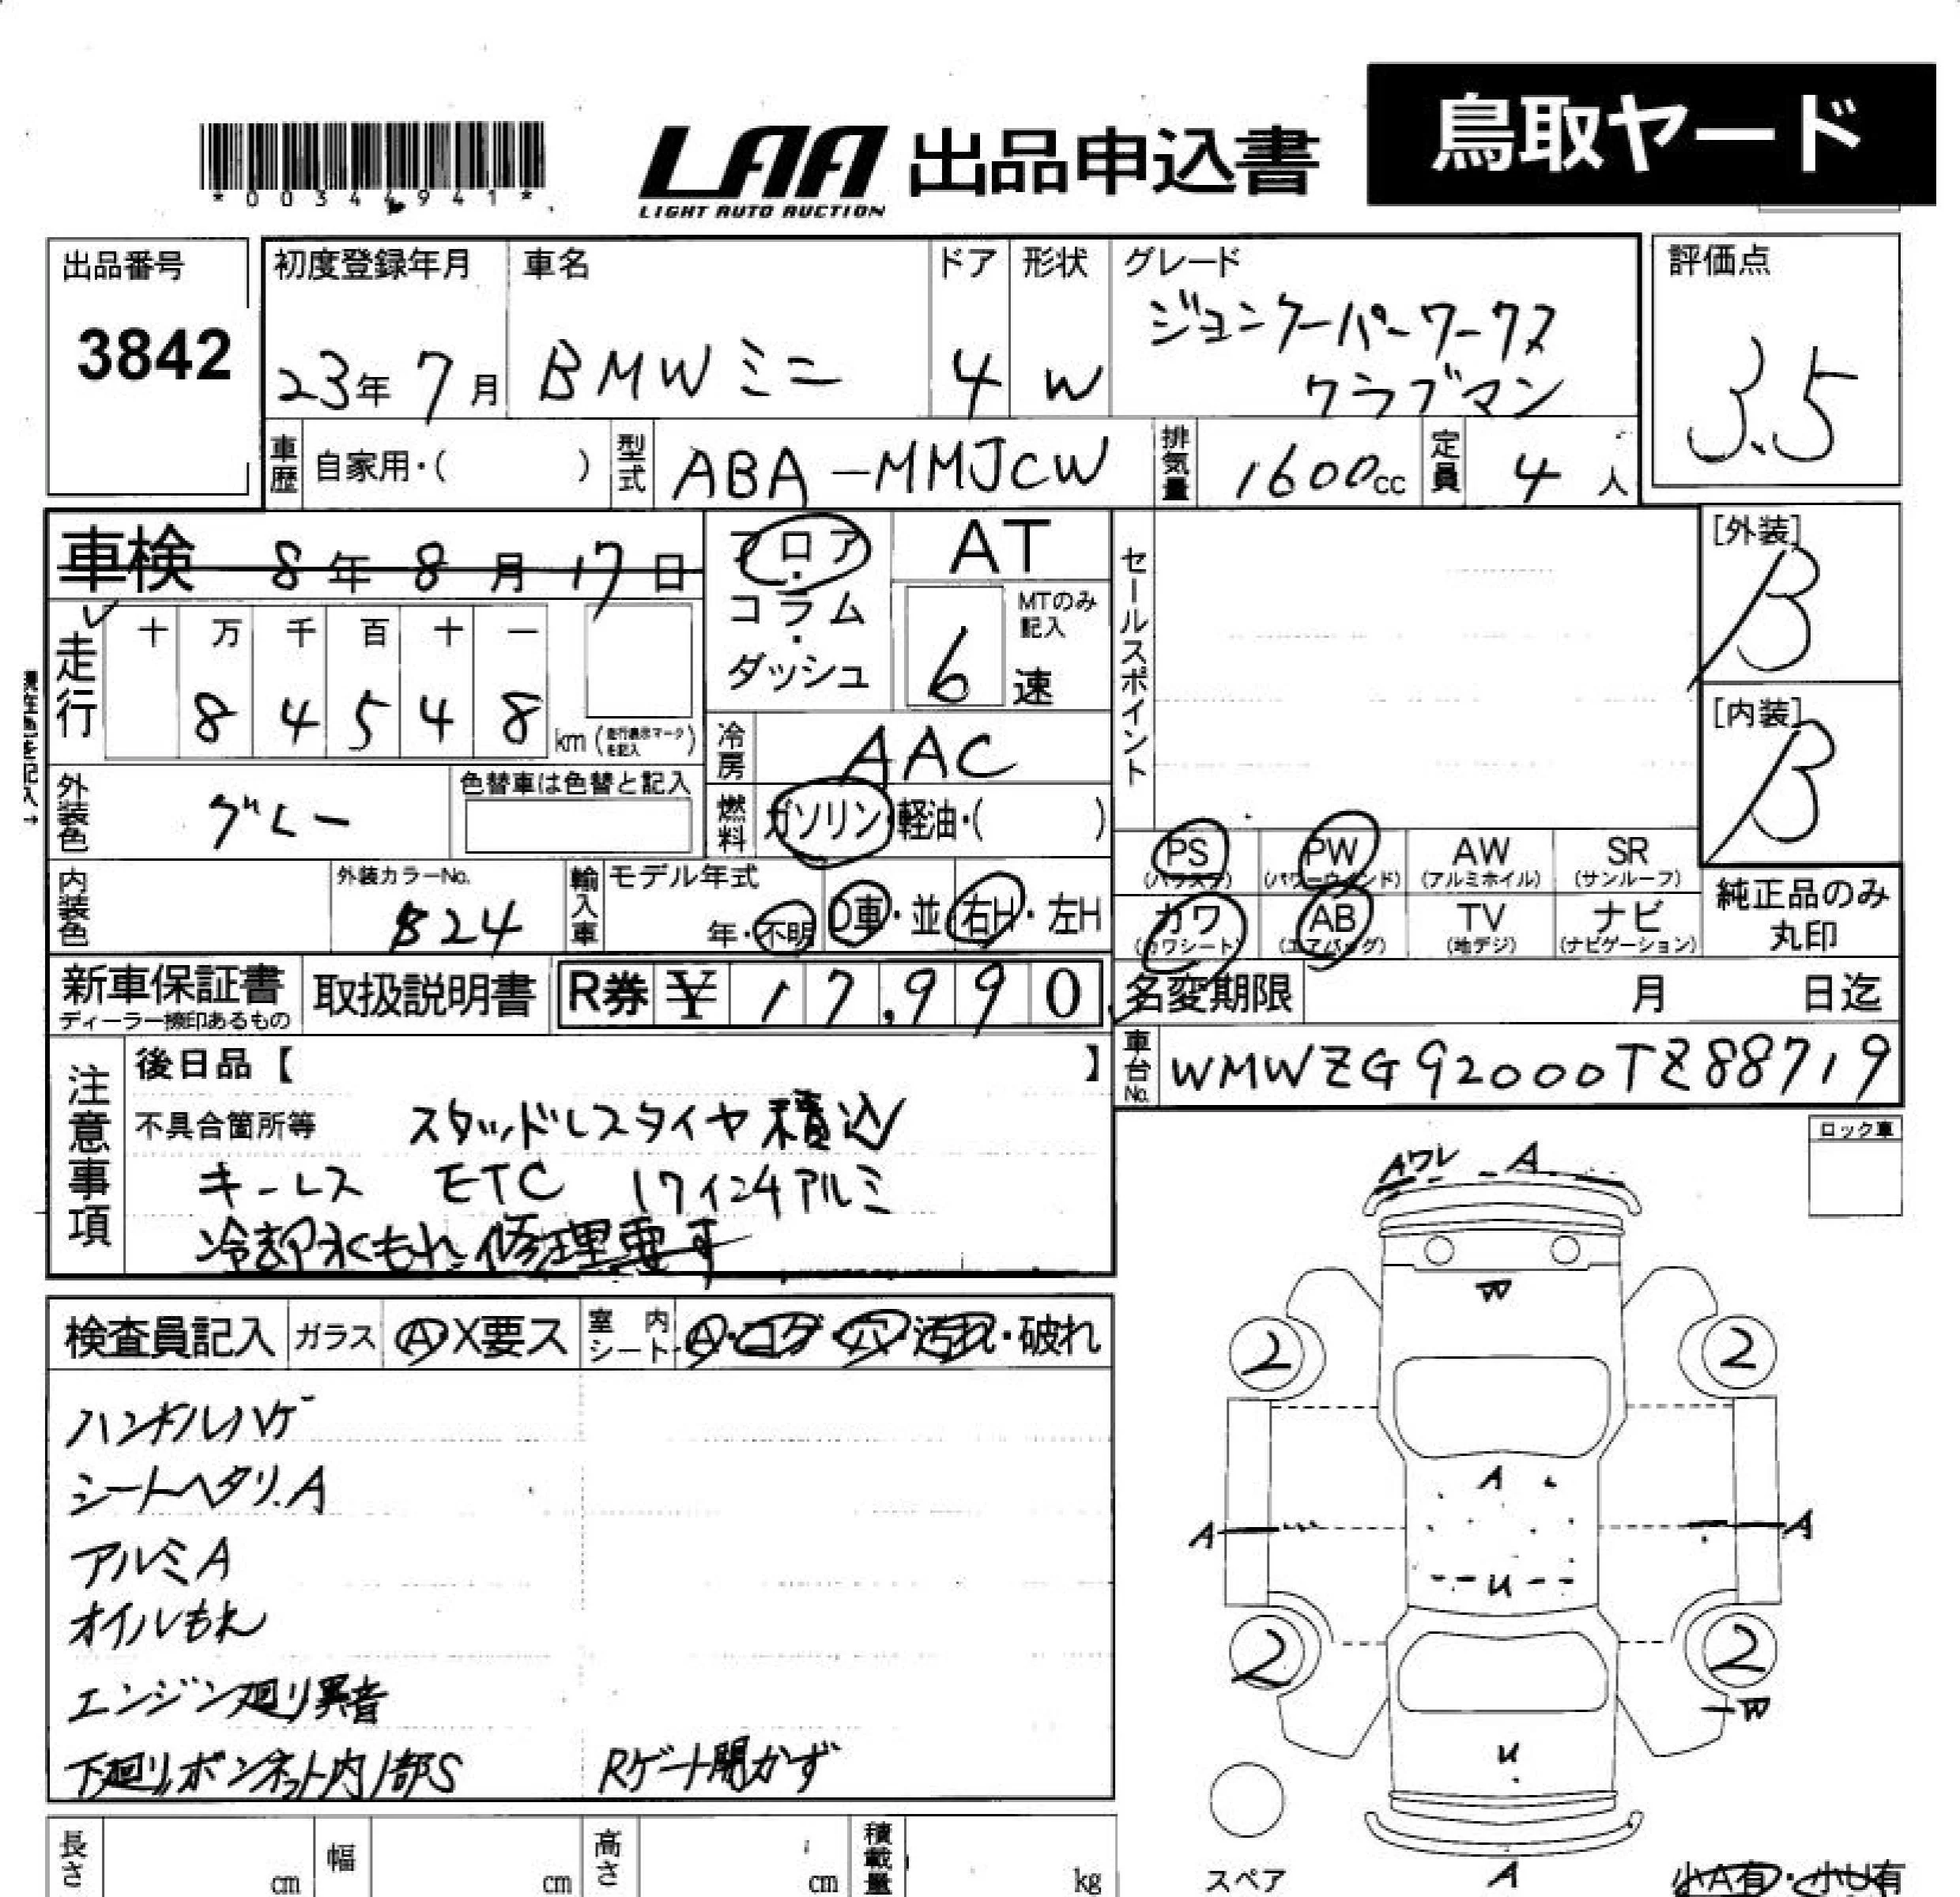 *00344941*
LAA 出品申込書
LIGHT AUTO AUCTION
鳥取ヤード
出品番号
3842
初度登録年月 車名 ドア 形状 グレード
23年 7月 BMWミニ 4 W ジョンクーパーワークス
クラブマン
評価点
3.5
車歴 自家用・( ) 型式 ABA-MMJCW 排気量 1600cc 定員 4人
車検 8年 8月 17日
フロア・コラム・ダッシュ
AT
6速 MTのみ記入
セールスポイント
[外装]
B
[内装]
B
走行 十 万 千 百 十 一
8 4 5 4 8 km (走行表示マークを記入)
現在色を記入→
冷房 AAC
外装色 グレー 色替車は色替と記入
燃料 ガソリン・軽油・( )
内装色 外装カラーNo. 824
輸入車 モデル年式 年・不明 D車・並 右H・左H
PS (パワステ) PW (パワーウインド) AW (アルミホイル) SR (サンルーフ)
カワ (カワシート) AB (エアバッグ) TV (地デジ) ナビ (ナビゲーション)
純正品のみ
丸印
新車保証書 ディーラー捺印あるもの 取扱説明書 R券 ¥ 17,990
名変期限 月 日迄
車台No. WMWZG92000TZ88719
注意事項
後日品【 】
不具合箇所等 スタッドレスタイヤ積込
キーレス ETC 17インチアルミ
冷却水もれ 修理要す
ロック車
検査員記入 ガラス A・X要ス 室内シート A・コゲ・穴・汚れ・破れ
ハンドルハゲ
シートヘタリ.A
アルミA
オイルもれ
エンジン廻り異音
下廻り.ボンネット内1部S Rゲート開かず
Aワレ A
W
2 2
A
A A
U
2 2
W
U
スペア A 小A有・小U有
長さ cm 幅 cm 高さ cm 積載量 kg